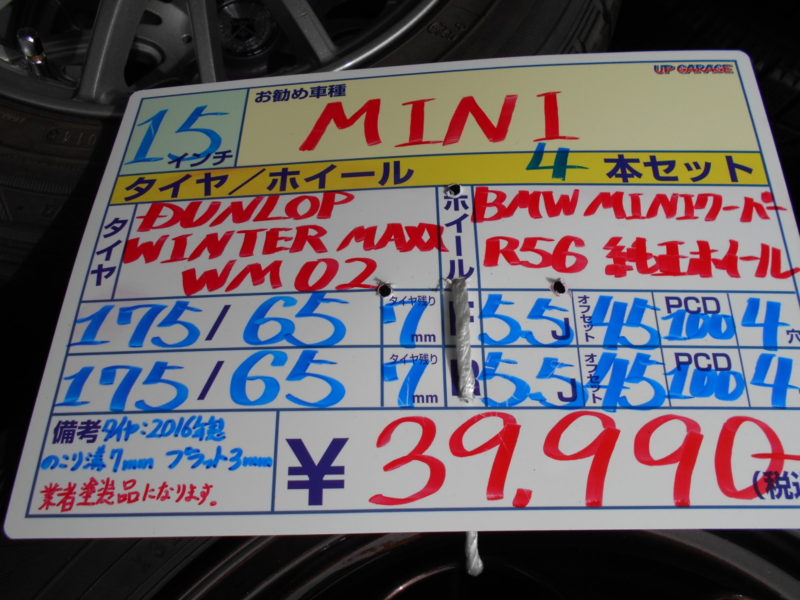 UP GARAGE
15インチ
お勧め車種
MINI
タイヤ/ホイール 4 本セット
タイヤ
DUNLOP
WINTER MAXX
WM02
ホイール
BMW MINIクーパー
R56 純正ホイール
175/65 タイヤ残り 7mm F 5.5J オフセット 45 PCD 100 4穴
175/65 タイヤ残り 7mm R 5.5J オフセット 45 PCD 100 4
備考 タイヤ:2016年製
のこり溝7mm プラット3mm
業者塗装品になります。
¥39,990
(税込